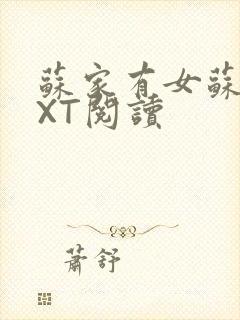 蘇家有女蘇
XT閱讀
蕭舒